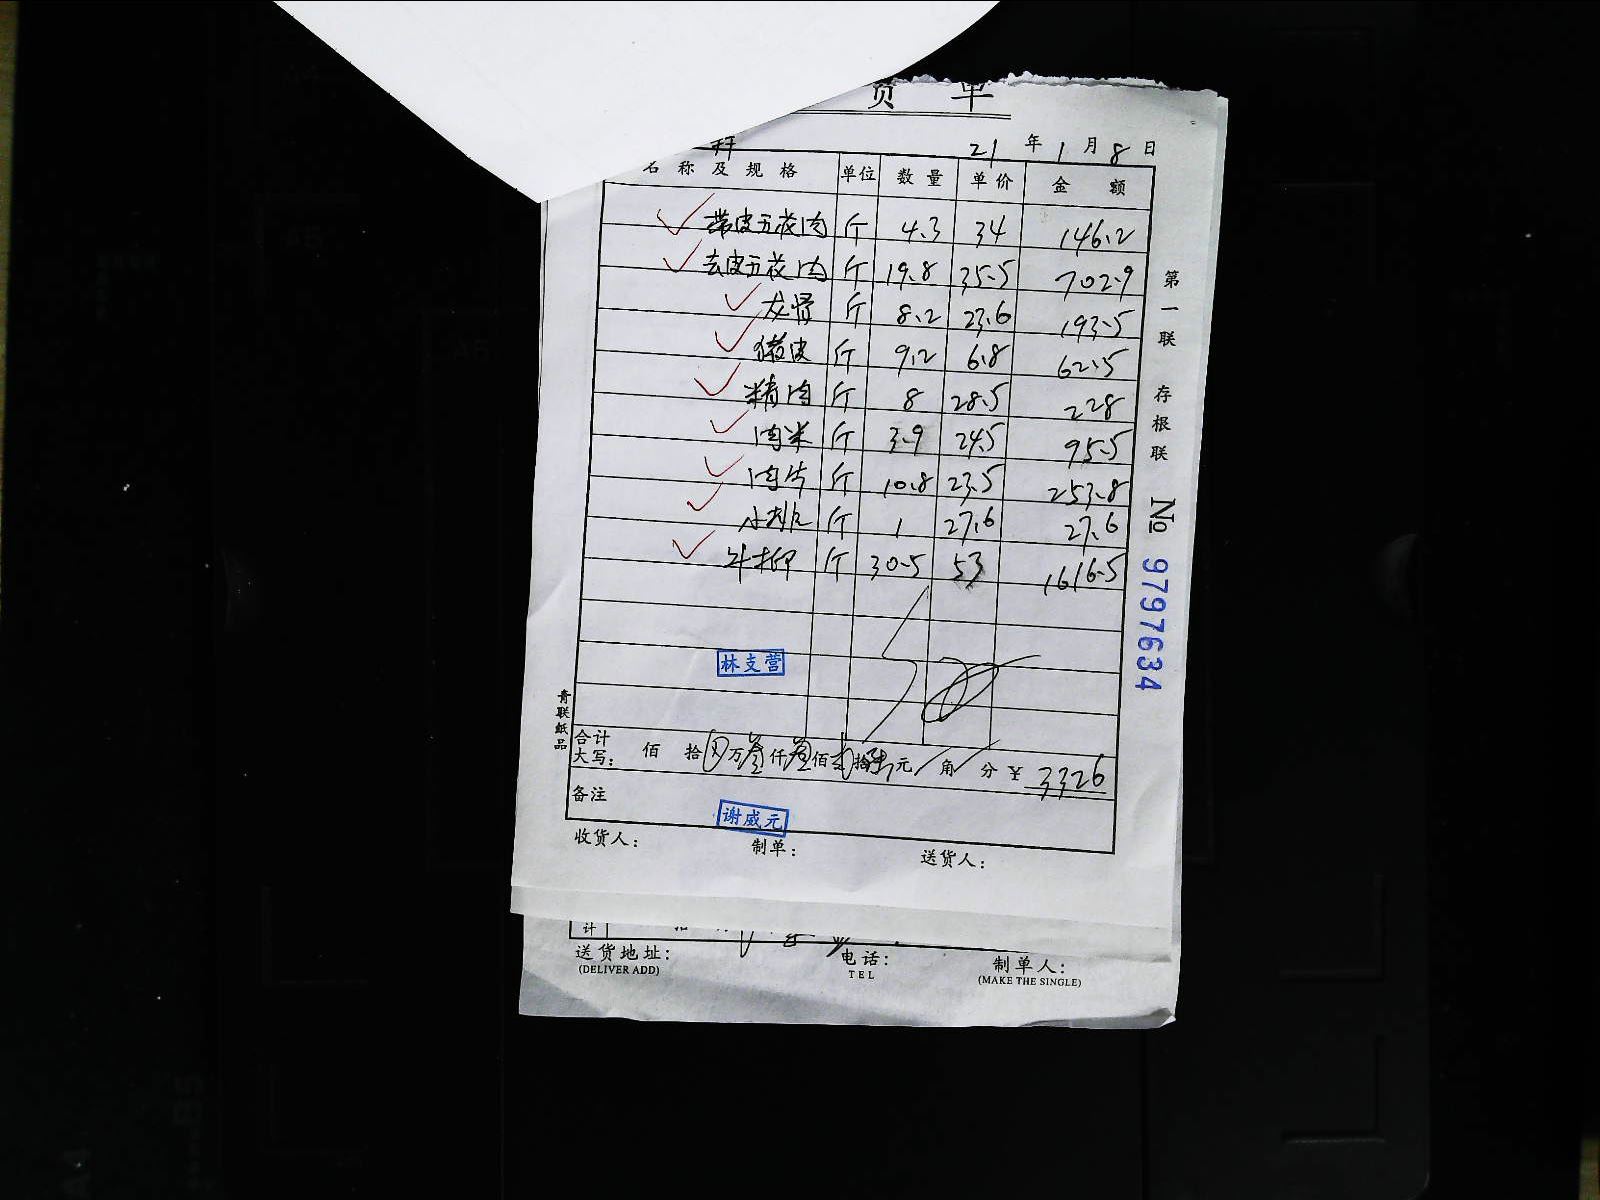 货 单
21 年 1 月 8 日
名称及规格 单位 数量 单价 金额
带皮五花肉 斤 4.3 34 146.2
去皮五花肉 斤 19.8 35.5 702.9
龙骨 斤 8.2 23.6 193.5
猪皮 斤 9.2 6.8 62.5
精肉 斤 8 28.5 228
肉米 斤 3.9 24.5 95.5
肉片 斤 10.8 23.5 253.8
小排 斤 1 27.6 27.6
牛柳 斤 30.5 53 1616.5
林支营
合计大写: 佰 拾 万叁仟叁佰贰拾陆元 角 分 ¥ 3326
备注
谢威元
收货人: 制单: 送货人:
第一联 存根联 № 9797634
青联纸品
计
送货地址: 电话: 制单人:
(DELIVER ADD) TEL (MAKE THE SINGLE)